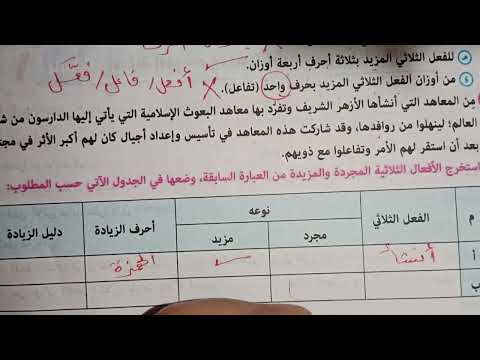 للفعل الثلاثي المزيد بثلاثة أحرف أربعة أوزان.
من أوزان الفعل الثلاثي المزيد بحرف واحد (تفاعل).
أفعل / فاعل / فعّل
من المعاهد التي أنشأها الأزهر الشريف وتفرَّد بها معاهد البعوث الإسلامية التي يأتي إليها الدارسون من
العالم؛ لينهلوا من روافدها، وقد شاركت هذه المعاهد في تأسيس وإعداد أجيال كان لهم أكبر الأثر في
بعد أن استقر لهم الأمر وتفاعلوا مع ذويهم.
استخرج الأفعال الثلاثية المجردة والمزيدة من العبارة السابقة، وضعها في الجدول الآتي حسب المطلوب:
م الفعل الثلاثي نوعه أحرف الزيادة دليل الزيادة
مجرد مزيد
أ أنشأ ✓ الهمزة
ب